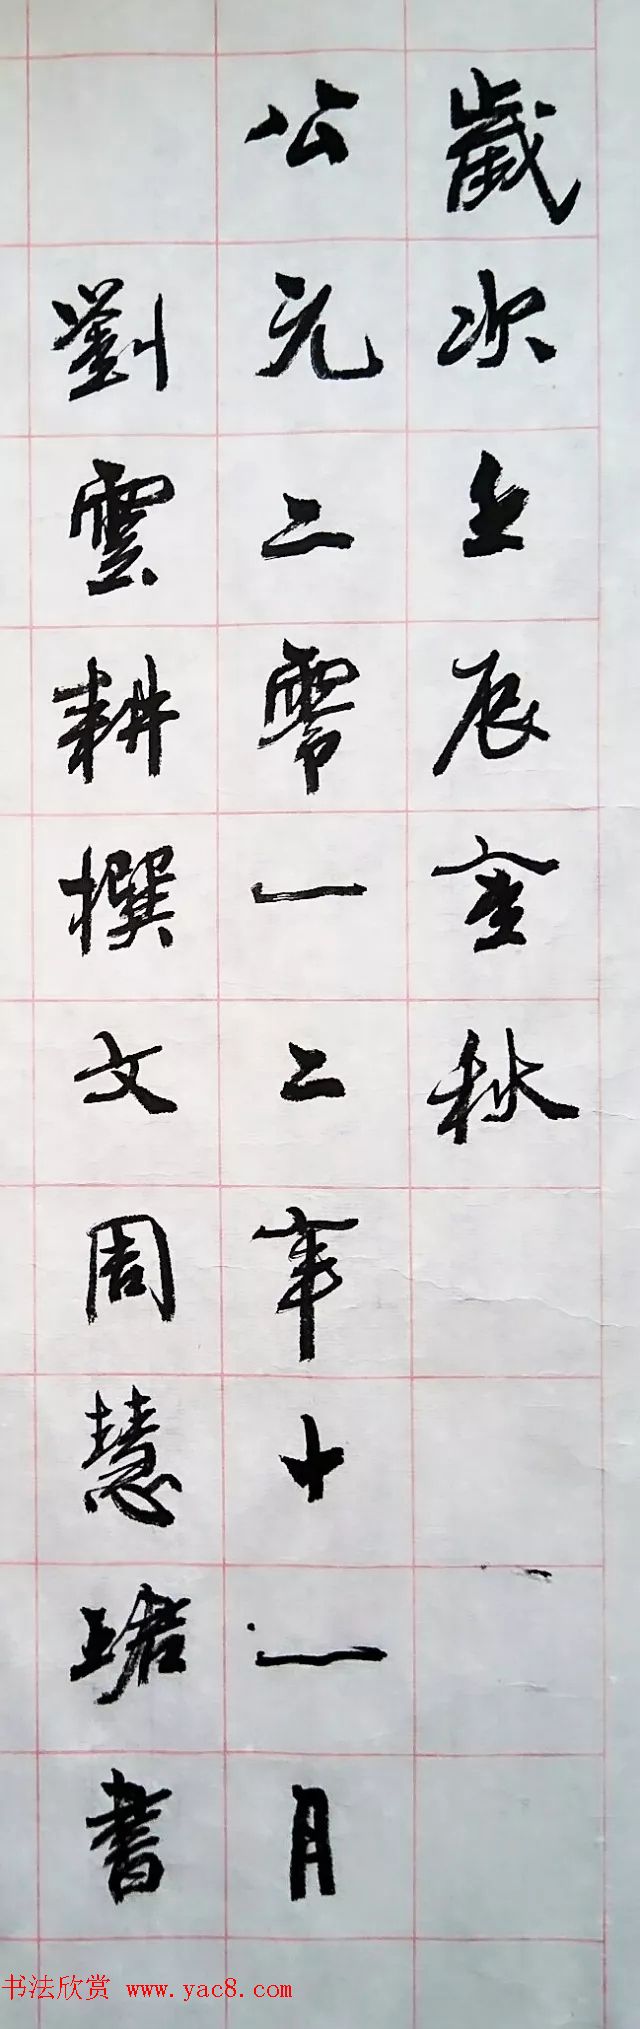 歲次壬辰金秋
公元二零一二年十一月
劉雲耕撰文周慧珺書
书法欣赏 www.yac8.com